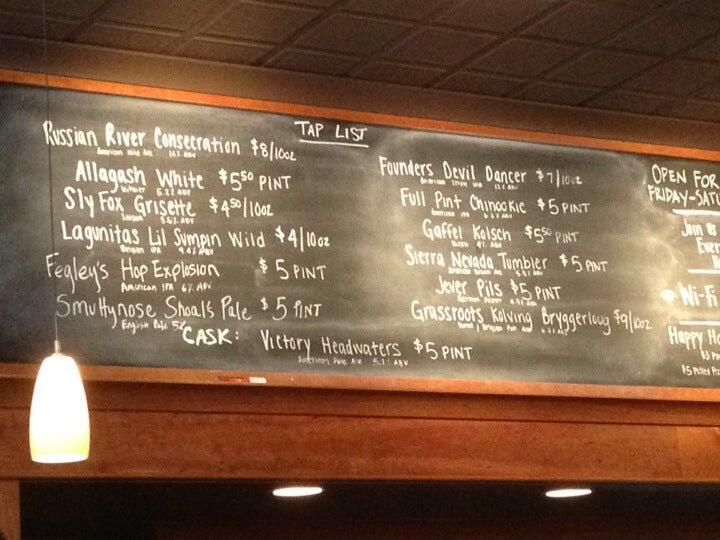 TAP LIST
Russian River Consecration $8/10oz
American Wild Ale 10% ABV
Allagash White $5.50 PINT
Witbier 5.2% ABV
Sly Fox Grisette $4.50/10oz
Saison 5.6% ABV
Lagunitas Lil Sumpin Wild $4/10oz
Fegley's Hop Explosion $5 PINT
American IPA 6% ABV
Smuttynose Shoals Pale $5 PINT
English Pale 5%
CASK: Victory Headwaters $5 PINT
American Pale Ale 5.1% ABV
Founders Devil Dancer $7/10oz
American Triple IPA 12% ABV
Full Pint Chinookie $5 PINT
American IPA
Gaffel Kolsch $5.50 PINT
Sierra Nevada Tumbler $5 PINT
American Brown Ale 5.5% ABV
Jever Pils $5 PINT
German Pilsner 4.9% ABV
Grassroots Kolving Bryggerloug $9/10oz
OPEN FOR
FRIDAY-SATU
Join us
Every
Wi-Fi
Happy Ho